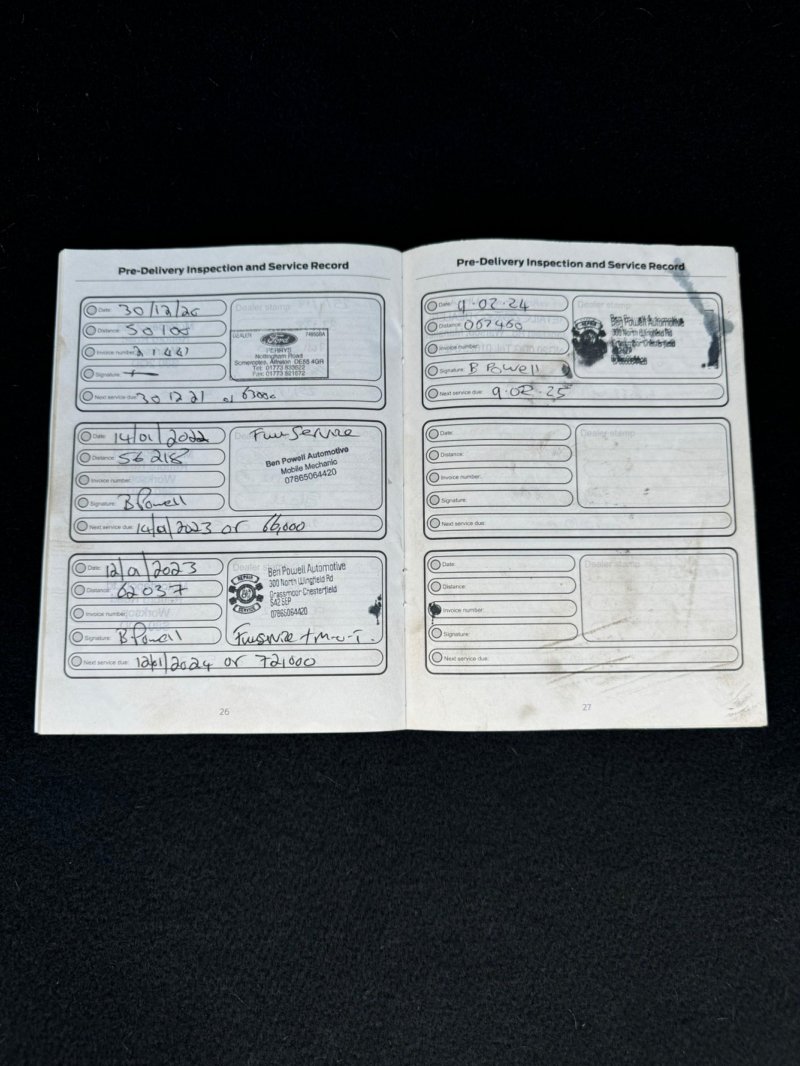 Pre-Delivery Inspection and Service Record
Date: 30/12/20
Distance: 50100
Invoice number:
Signature:
Next service due: 30 12 21 or
Dealer stamp
DEALER
Ford
PERRYS
Nottingham Road
Somercotes, Alfreton DE55 4GR
Tel: 01773 833622
Fax: 01773 821672
Date: 14/01/2022
Distance: 56218
Invoice number:
Signature: B Powell
Next service due: 14/01/2023 or 66,000
Full Service
Ben Powell Automotive
Mobile Mechanic
07865064420
Date: 12/01/2023
Distance: 62037
Invoice number:
Signature: B Powell
Next service due: 12/01/2024 or 72,000
Dealer
REPAIR
SERVICE
Ben Powell Automotive
300 North Wingfield Rd
Grassmoor Chesterfield
S42 5EP
07865064420
Full Service + M-O-T.
26
Pre-Delivery Inspection and Service Record
Date: 9.02.24
Distance: 067460
Invoice number:
Signature: B Powell
Next service due: 9.02.25
Dealer stamp
Ben Powell Automotive
300 North Wingfield Rd
Grassmoor Chesterfield
07865064420
Date:
Distance:
Invoice number:
Signature:
Next service due:
Dealer stamp
Date:
Distance:
Invoice number:
Signature:
Next service due:
Dealer stamp
27